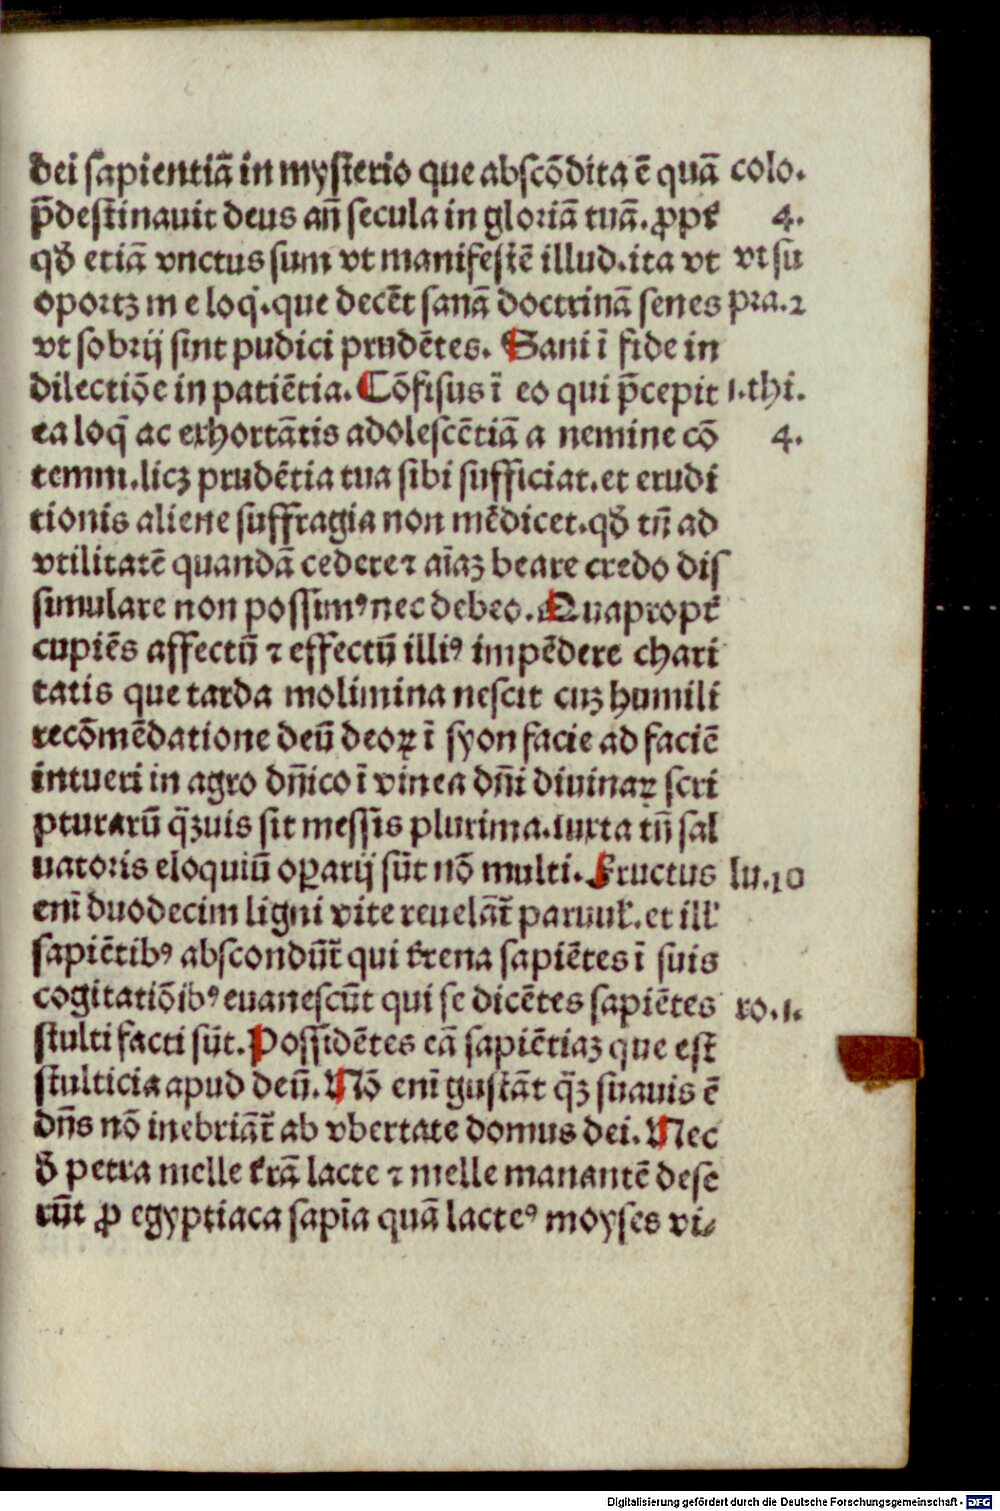 dei sapientiā in mysterio que abscōdita ē quā colo.
p̄destinauit deus an̄ secula in gloriā tuā. ꝓpt̄ 4.
qđ etiā vnctus sum vt manifestē illud. ita vt vt su
oportꝫ m e loq̇. que decēt sanā doctrinā senes pra. 2
vt sobrij sint pudici prudētes. Sani ī fide in
dilectiōe in patiētia. Cōfisus ī eo qui p̄cepit 1. thi.
ea loq̄ ac exhortātis adolescētiā a nemine cō 4.
temni. licꝫ prudētia tua sibi sufficiat. et erudi
tionis aliene suffragia non mēdicet. qđ tn̄ ad
vtilitatē quandā cedere ⁊ aīaꝫ beare credo dis
simulare non possimꝰ nec debeo. Quapropt̄
cupiēs affectū ⁊ effectū illiꝰ impēdere chari
tatis que tarda molimina nescit cuꝫ humili
recōmēdatione deū deoꝝ ī syon facie ad faciē
intueri in agro dn̄ico ī vinea dn̄i diuinaꝝ scri
pturarū q̄ꝫuis sit messis plurima. iuxta tn̄ sal
uatoris eloquiū oꝑarij sūt nō multi. Fructus lu. 10
enī duodecim ligni vite reuelāt̄ paruul̓. et ill̓
sapiētibꝰ abscondūt̄ qui t̄rena sapiētes ī suis
cogitatiōibꝰ euanescūt qui se dicētes sapiētes ro. 1.
stulti facti sūt. Possidētes eā sapiētiaꝫ que est
stulticia apud deū. Nō enī gustāt q̄ꝫ suauis ē
dn̄s nō inebriāt̄ ab vbertate domus dei. Nec
đ petra melle t̄rā lacte ⁊ melle manantē dese
rūt ꝓ egyptiaca sapīa quā lacteꝰ moyses vi⸗
Digitalisierung gefördert durch die Deutsche Forschungsgemeinschaft - DFG